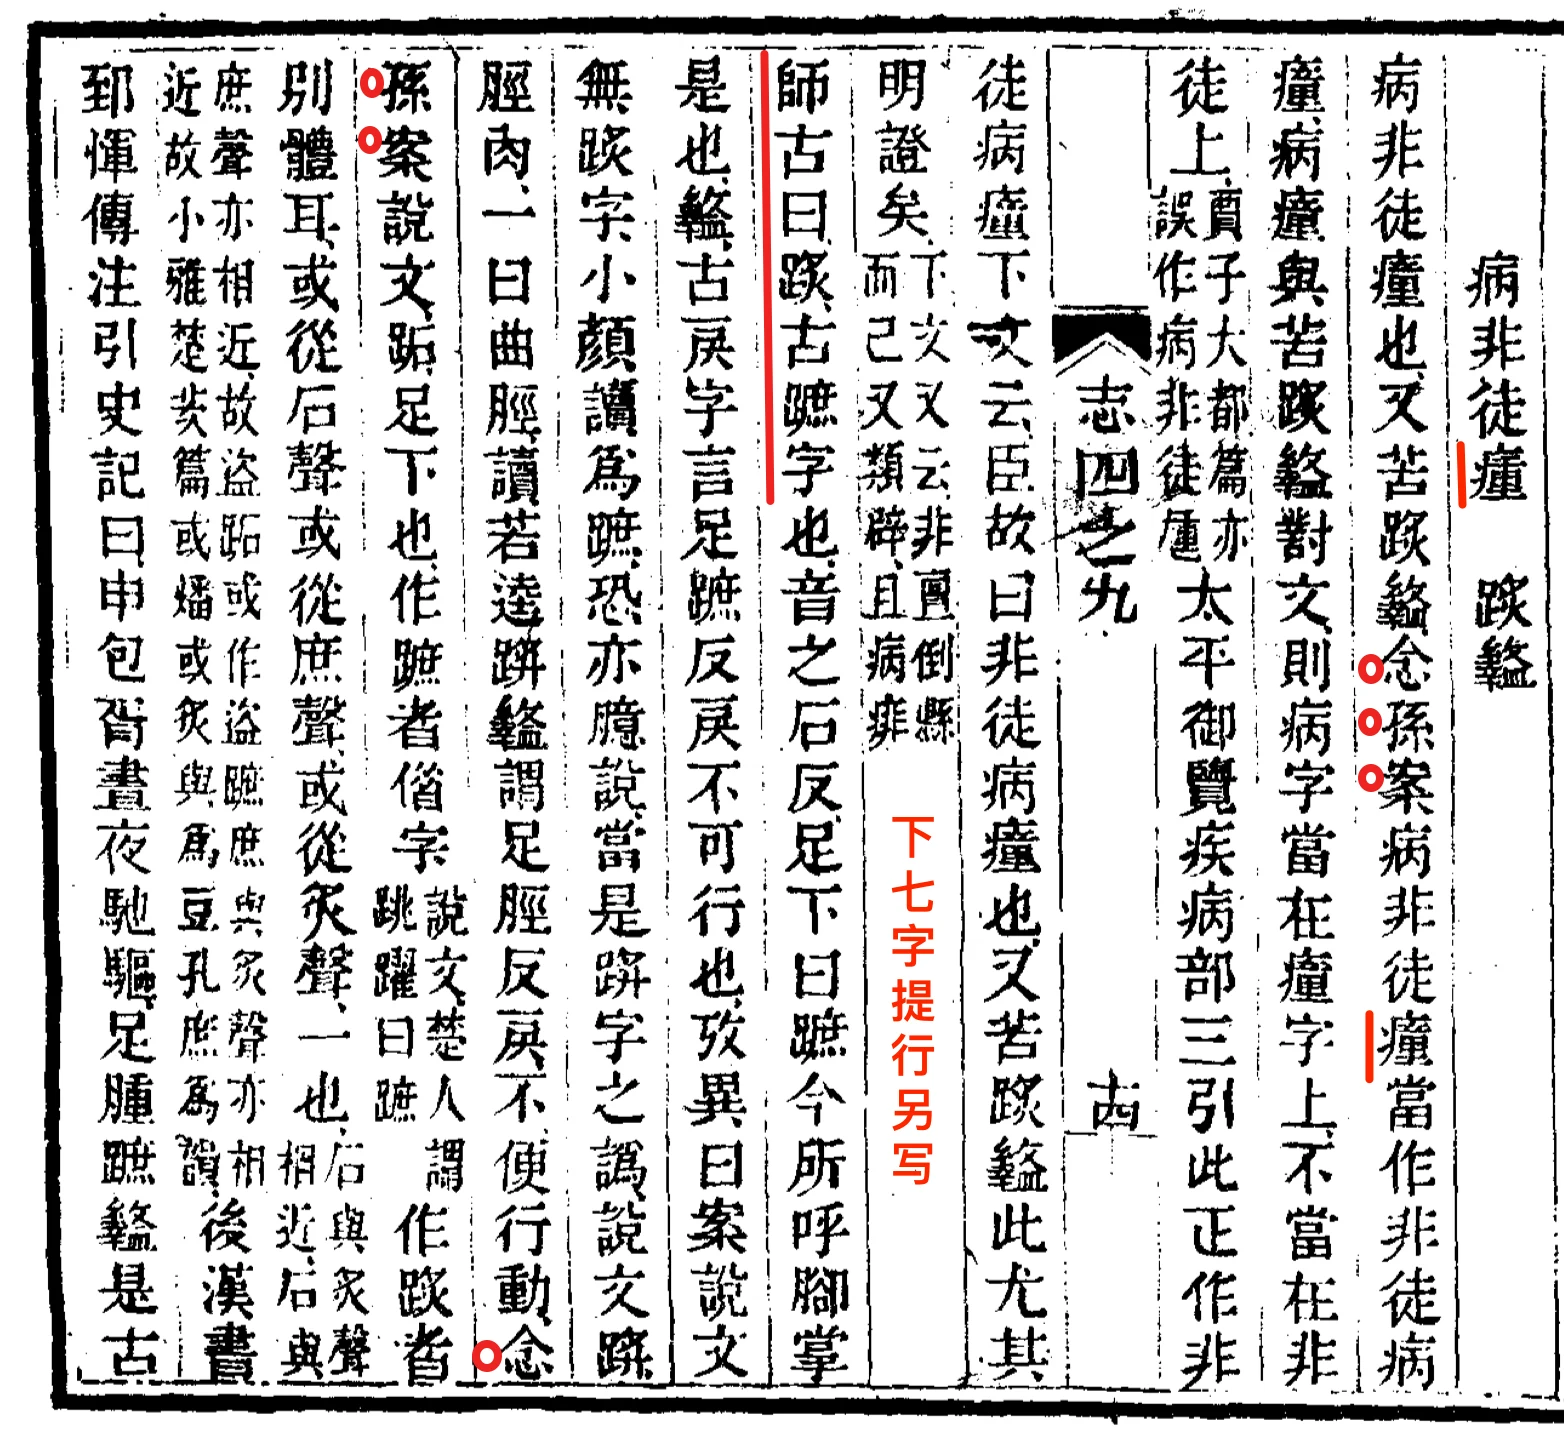 病非徒瘇　𨂂盭
病非徒瘇也又苦𨂂盭念孫案病非徒瘇當作非徒病
瘇病瘇與苦𨂂盭對文則病字當在瘇字上不當在非
徒上賈子大都篇亦誤作病非徒瘇太平御覽疾病部三引此正作非
志四之九　十四
徒病瘇下文云臣故曰非徒病瘇也又苦𨂂盭此尤其
明證矣下文又云非亶倒縣而已又類辟且病痱
下七字提行另写
師古曰𨂂古蹠字也音之石反足下曰蹠今所呼腳掌
是也盭古戾字言足蹠反戾不可行也攷異曰案說文
無𨂂字小顏讀爲蹠恐亦臆說當是䠊字之譌說文䠊
脛肉一曰曲脛讀若逵䠊盭謂足脛反戾不便行動念
孫案說文跖足下也作蹠者借字說文楚人謂跳躍曰蹠作𨂂者
別體耳或從石聲或從庶聲或從炙聲一也石與炙聲相近石與
庶聲亦相近故盜跖或作盜蹠庶與炙聲亦相近故小雅楚茨篇或燔或炙與爲豆孔庶爲韻後漢書
郅惲傳注引史記曰申包胥晝夜馳驅足腫蹠盭是古